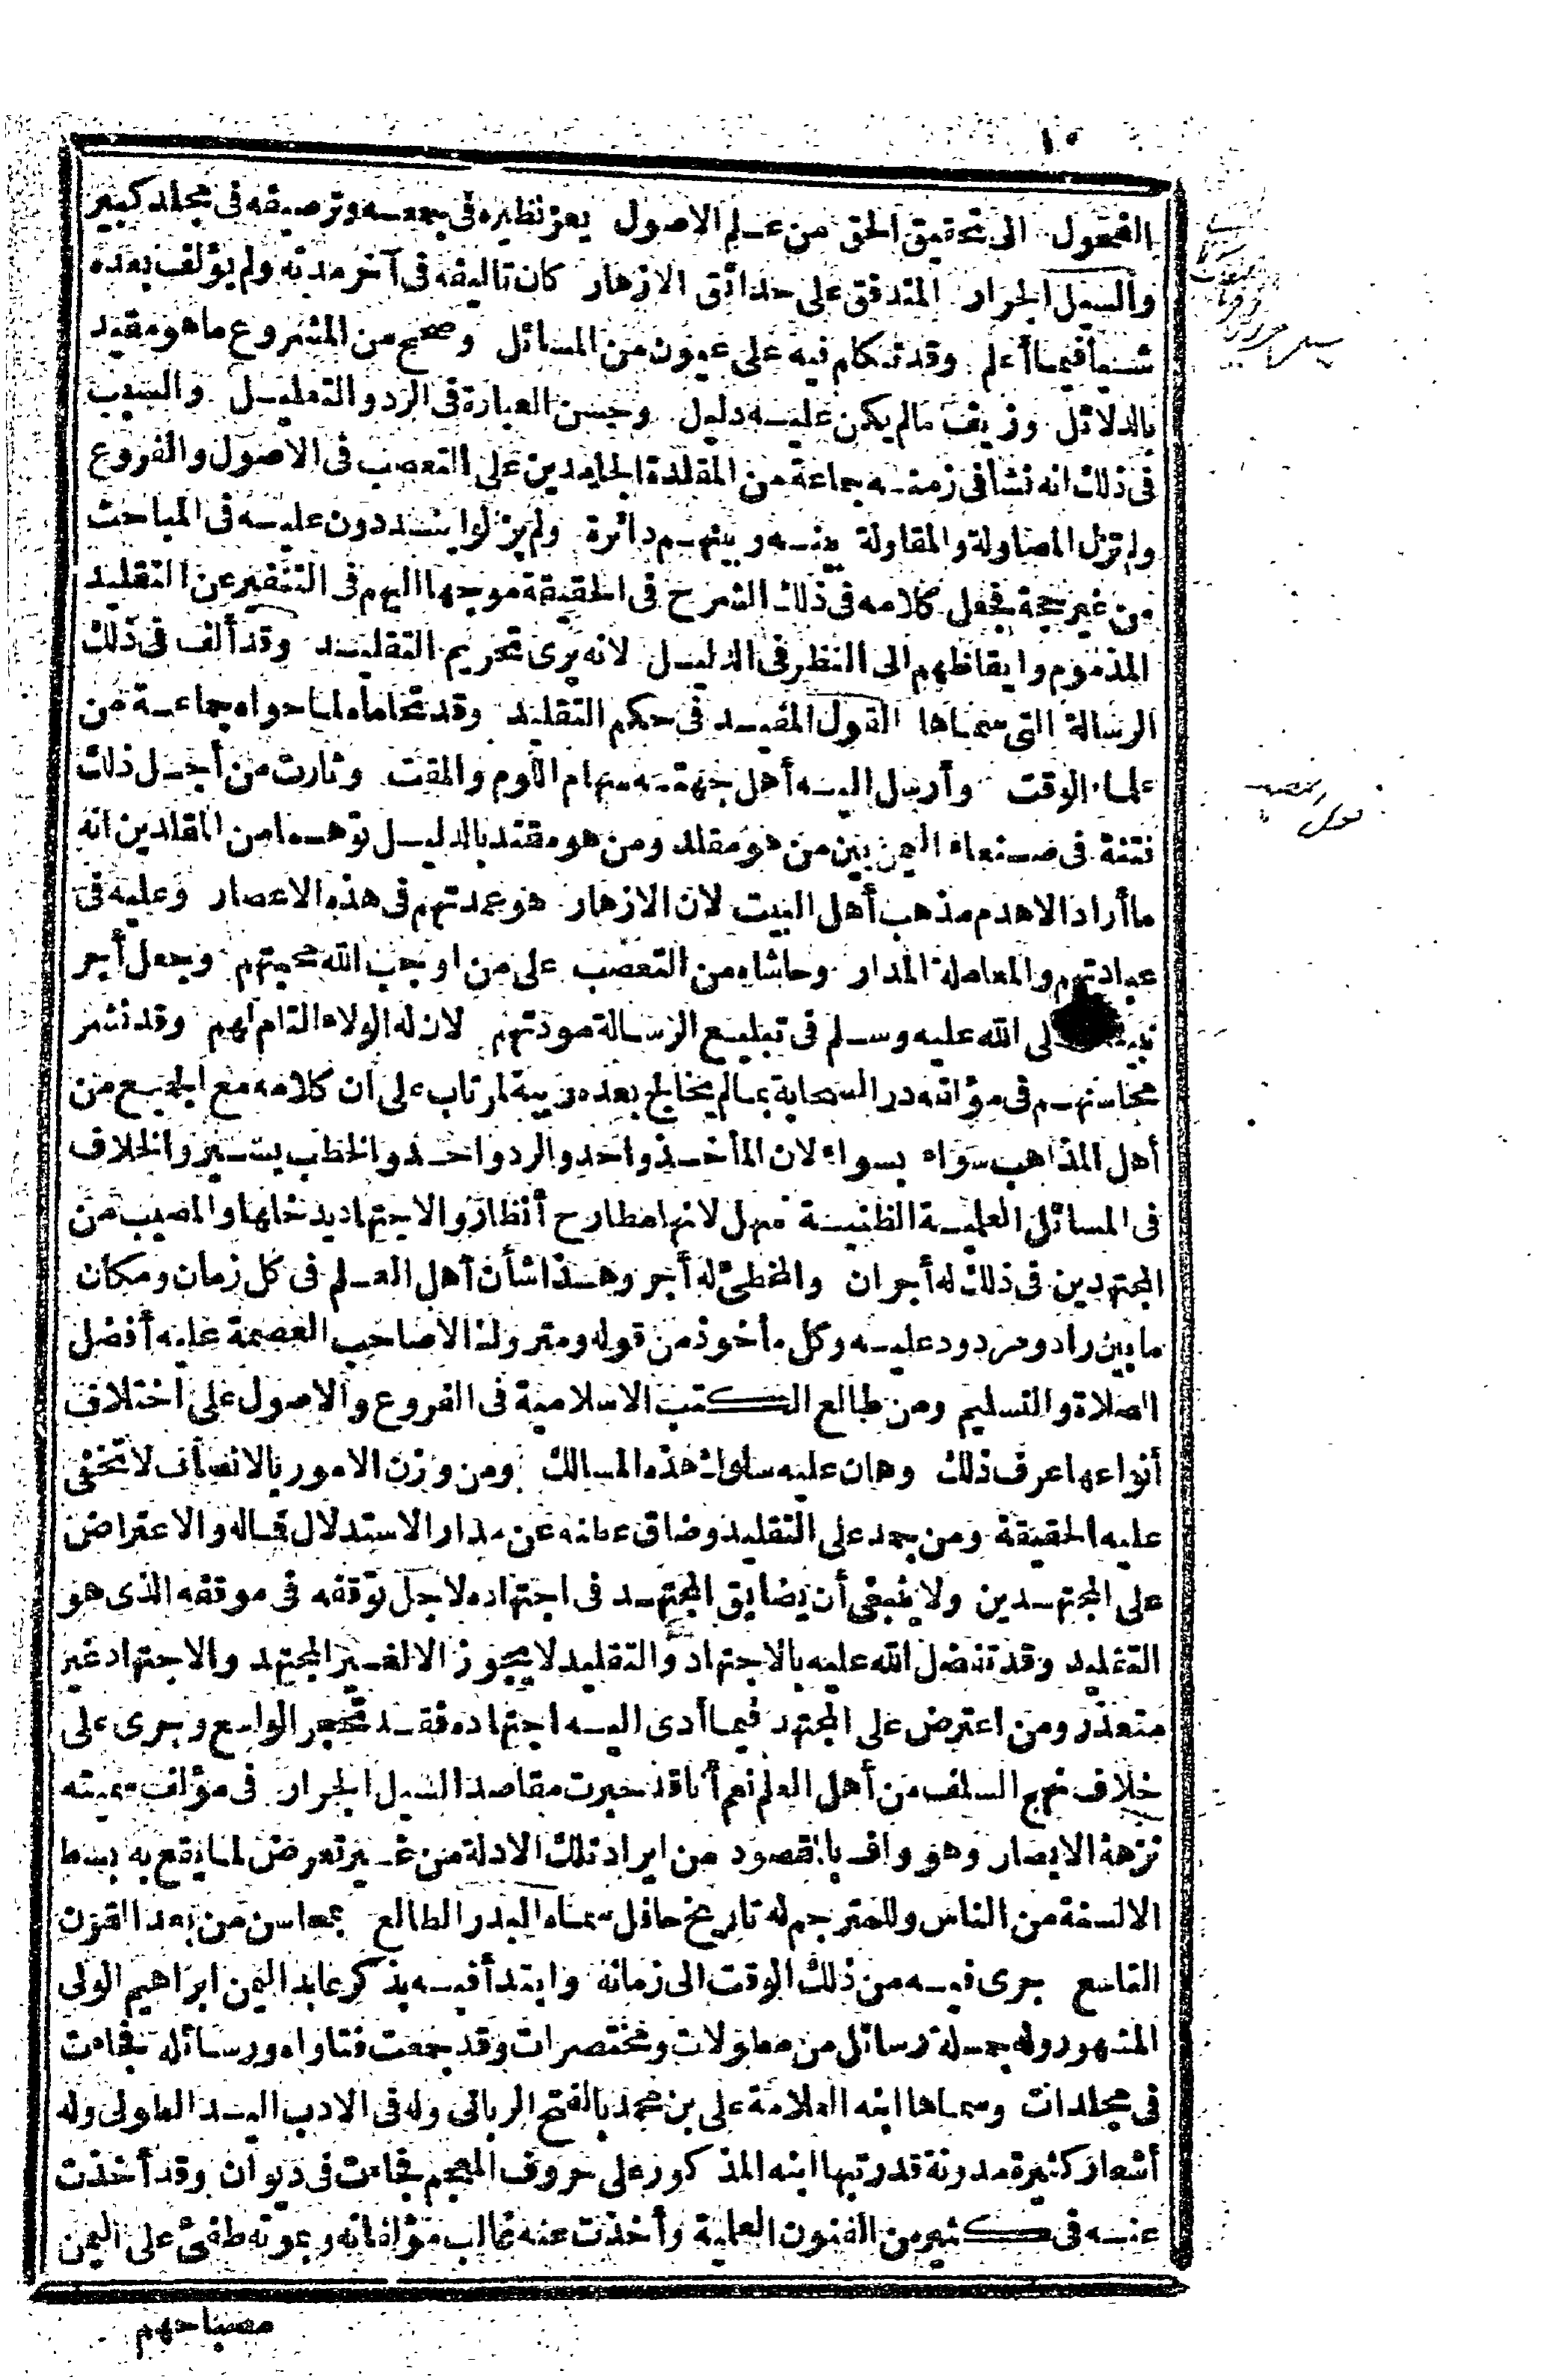 ١٠
الفحول الى تحقيق الحق من علم الاصول يعز نظيره فى جمعه وترصيفه فى مجلد كبير
والسيل الجرار المتدفق على حدائق الازهار كان تاليفه فى آخر مدته ولم يؤلف بعده
شيأ فيما أعلم وقد تكلم فيه على عيون من المسائل وصحح من المشروع ما هو مقيد
بالدلائل وزيف ما لم يكن عليه دليل وحسن العبارة فى الرد والتعليل والسبب
فى ذلك انه نشأ فى زمنه جماعة من المقلدة الجامدين على التعصب فى الاصول والفروع
ولم تزل المصاولة والمقاولة بينه وبينهم دائرة ولم يزالوا ينددون عليه فى المباحث
من غير حجة فجعل كلامه فى ذلك الشرح فى الحقيقة موجها اليهم فى التنفير عن التقليد
المذموم وايقاظهم الى النظر فى الدليل لانه يرى تحريم التقليد وقد ألف فى ذلك
الرسالة التى سماها القول المفيد فى حكم التقليد وقد تحاماه لما حواه جماعة من
علماء الوقت وأرسل اليه أهل جهته سهام اللوم والمقت وثارت من أجل ذلك
فتنة فى صنعاء اليمن بين من هو مقلد ومن هو مقتد بالدليل توهما من المقلدين انه
ما أراد الا هدم مذهب أهل البيت لان الازهار هو عمدتهم فى هذه الاعصار وعليه فى
عبادتهم والمعاملة المدار وحاشاه من التعصب على من اوجب الله محبتهم وجعل أجر
نبينا صلى الله عليه وسلم فى تبليغ الرسالة مودتهم لان له الولاء التام لهم وقد نشر
محاسنهم فى مؤلفه در السحابة بما لم يخالج بعده ريبة لمرتاب على ان كلامه مع الجميع من
أهل المذاهب سواء بسواء لان المأخذ واحد والرد واحد والخطب يسير والخلاف
فى المسائل العلمية الظنية سهل لانها مطارح أنظار والاجتهاد يدخلها والمصيب من
المجتهدين فى ذلك له أجران والمخطئ له أجر وهذا شأن أهل العلم فى كل زمان ومكان
ما بين راد ومردود عليه وكل مأخوذ من قوله ومتروك الا صاحب العصمة عليه أفضل
الصلاة والتسليم ومن طالع الكتب الاسلامية فى الفروع والاصول على اختلاف
أنواعها عرف ذلك وهان عليه سلوك هذه المسالك ومن وزن الامور بالانصاف لا تخفى
عليه الحقيقة ومن جمد على التقليد وضاق عطنه عن مدار الاستدلال فماله والاعتراض
على المجتهدين ولا ينبغى أن يضايق المجتهد فى اجتهاده لاجل توقفه فى موقفه الذى هو
التقليد وقد تفضل الله عليه بالاجتهاد والتقليد لا يجوز الا لغير المجتهد والاجتهاد غير
متعذر ومن اعترض على المجتهد فيما أدى اليه اجتهاده فقد تحجر الواسع وجرى على
خلاف نهج السلف من أهل العلم نعم أنا قد حررت مقاصد السيل الجرار فى مؤلف سميته
نزهة الابصار وهو واف بالمقصود من ايراد تلك الادلة من غير تعرض لما يقع به بسط
الالسنة من الناس وللمترجم له تاريخ حافل سماه البدر الطالع بمحاسن من بعد القرن
التاسع جرى فيه من ذلك الوقت الى زمانه وابتدأ فيه بذكر عابد اليمن ابراهيم الولى
المشهور وله جملة رسائل من مطولات ومختصرات وقد جمعت فتاواه ورسائله فجاءت
فى مجلدات وسماها ابنه العلامة على بن محمد بالفتح الربانى وله فى الادب اليد الطولى وله
أشعار كثيرة مدونة قد رتبها ابنه المذكور على حروف المعجم فجاءت فى ديوان وقد أخذت
عنه فى كثير من الفنون العلمية وأخذت عنه غالب مؤلفاته وبموته طفئ على اليمن
مصباحهم